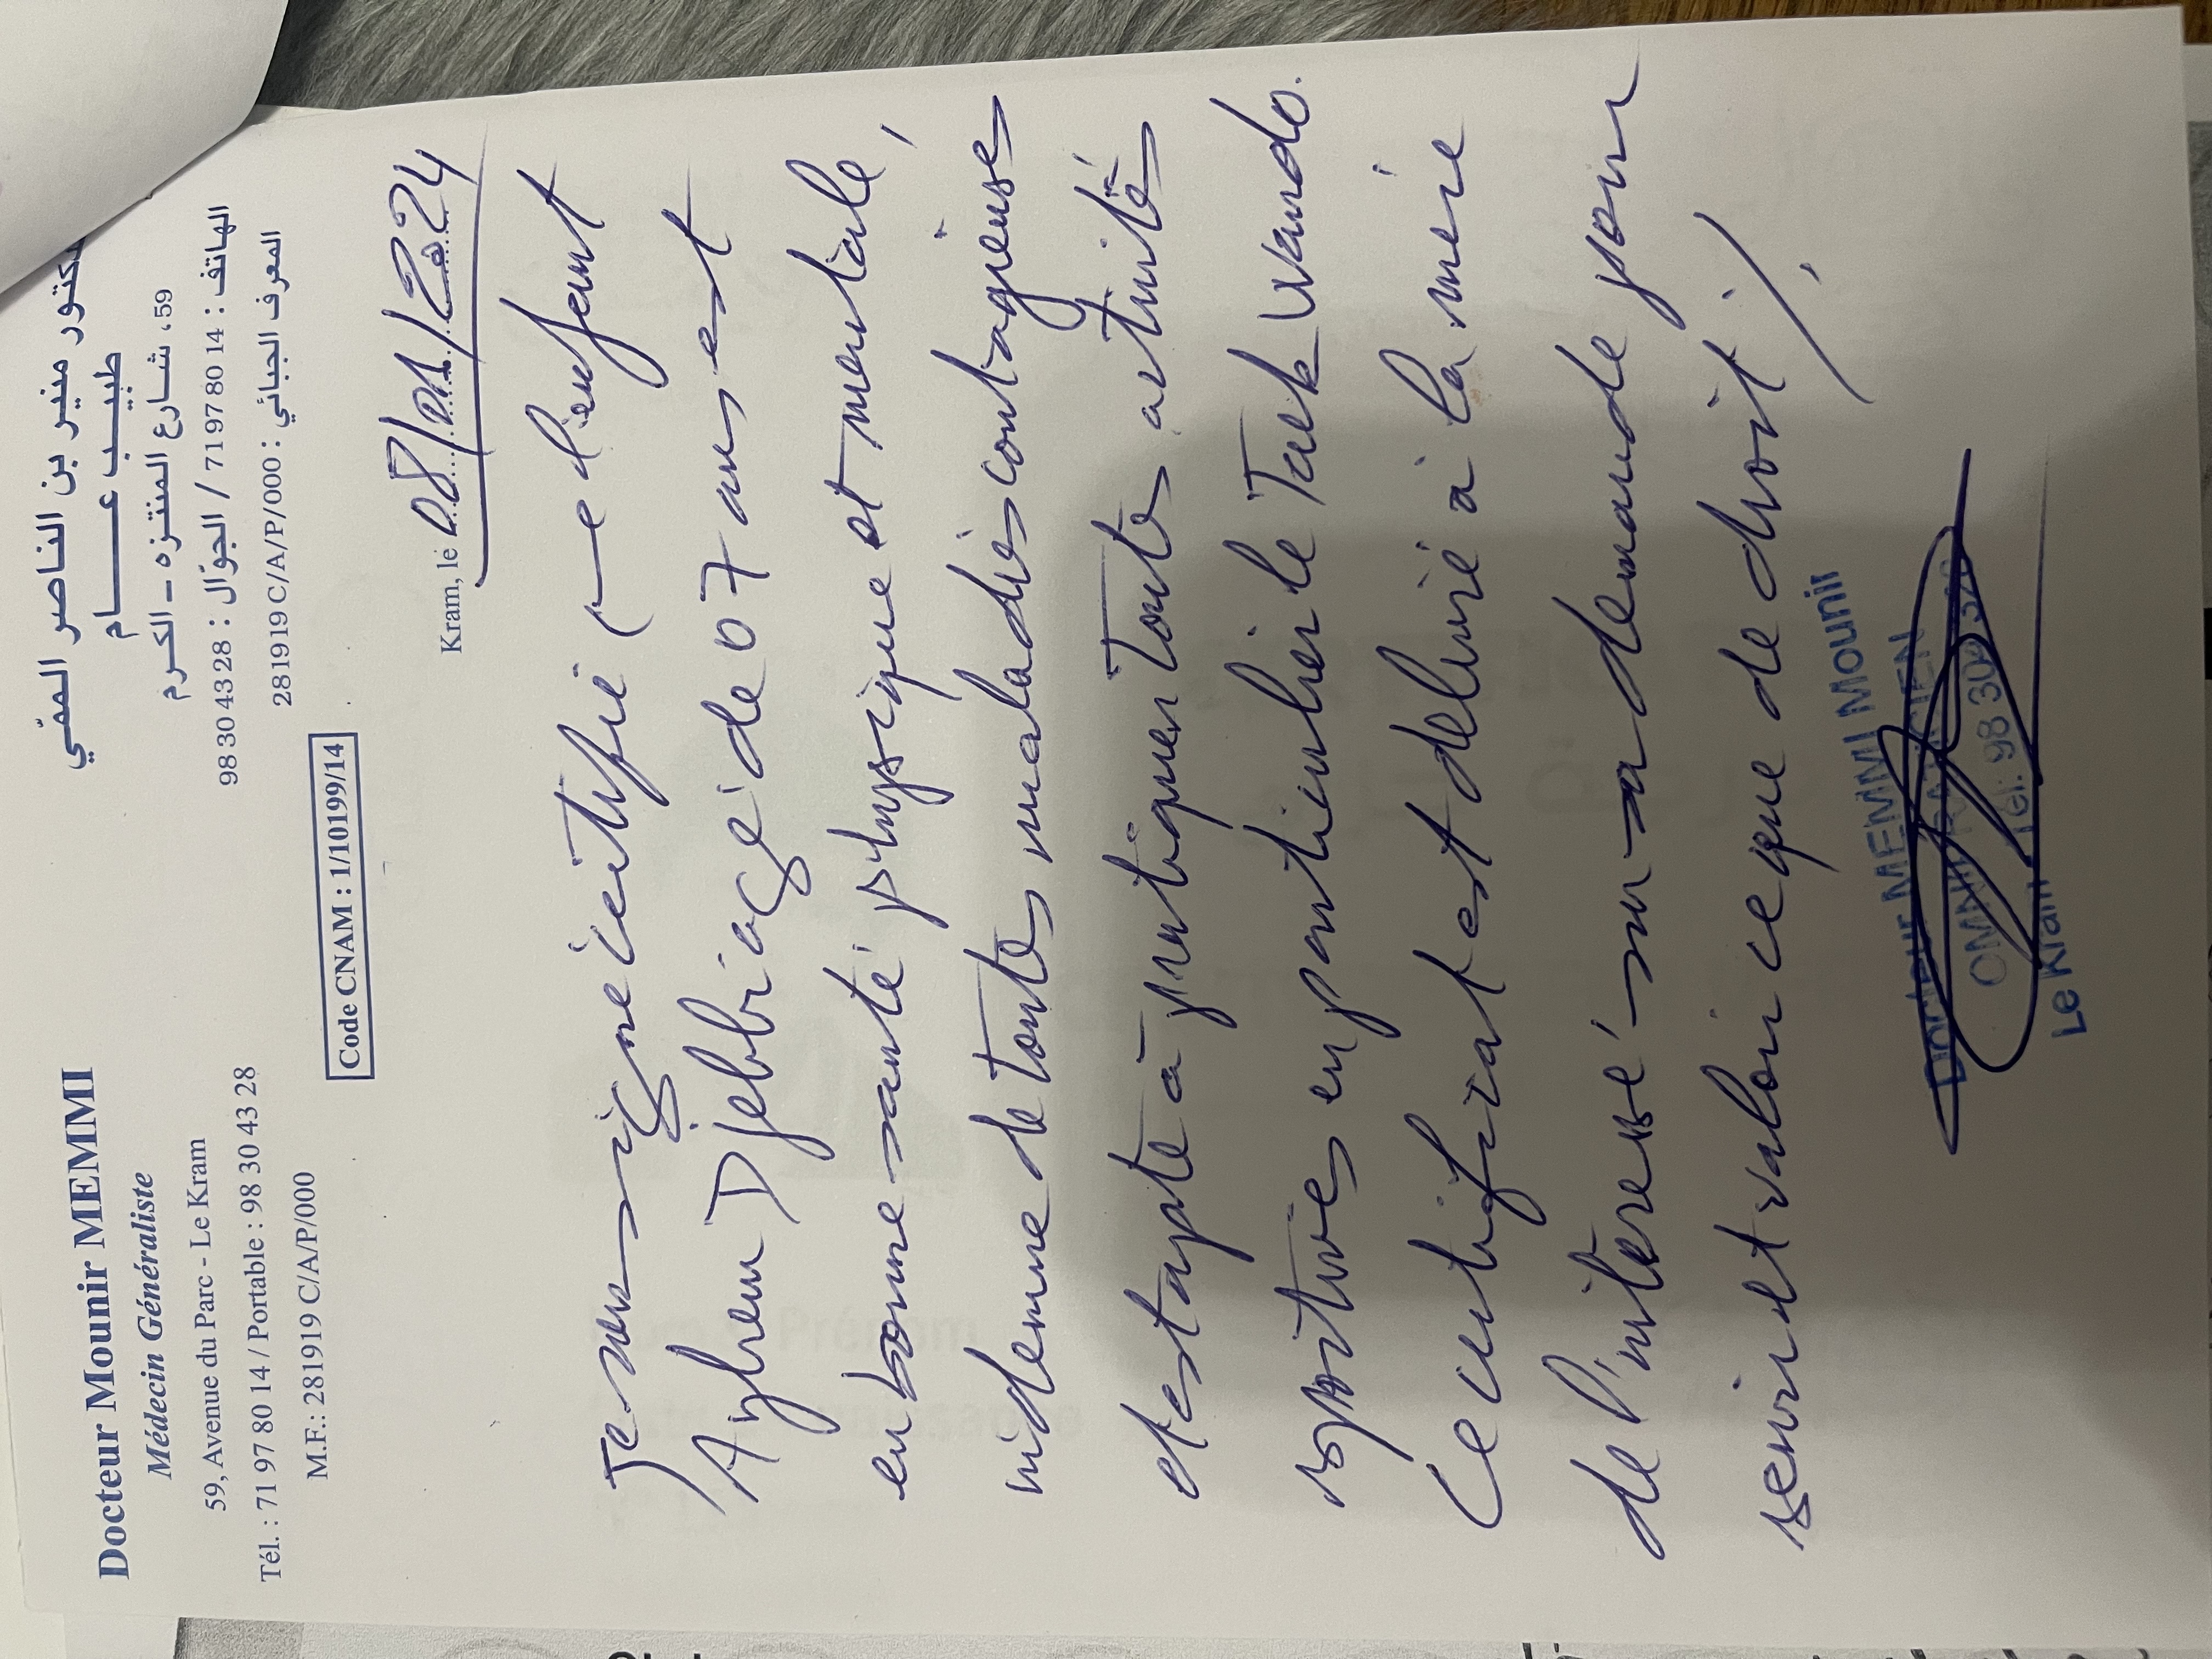 Docteur Mounir MEMMI
Médecin Généraliste
59, Avenue du Parc - Le Kram
Tél. : 71 97 80 14 / Portable : 98 30 43 28
M.F.: 281919 C/A/P/000
كتور منير بن الناصر الممّي
طبيـــب عـــــــام
59، شــارع المنتــزه ــ الكــرم
الهاتف : 71 97 80 14 / الجوّال : 98 30 43 28
المعرف الجبائي : 281919 C/A/P/000
Code CNAM : 1/10199/14
Kram, le 08/01/2024
Je sous signé certifie que l'enfant
Ayhem Djebbi agé de 07 ans est
en bonne santé physique et mentale,
indemne de toutes maladies contagieuses
et est apte à pratiquer toutes activités
sportives en particulier le Taek Wando.
Ce certificat est delivré à la mère
de l'interessé sur sa demande pour
servir et valoir ce que de droit ./.
Docteur MEMMI Mounir
OMNIPRATICIEN
Le Kram Tél.: 98 304 328